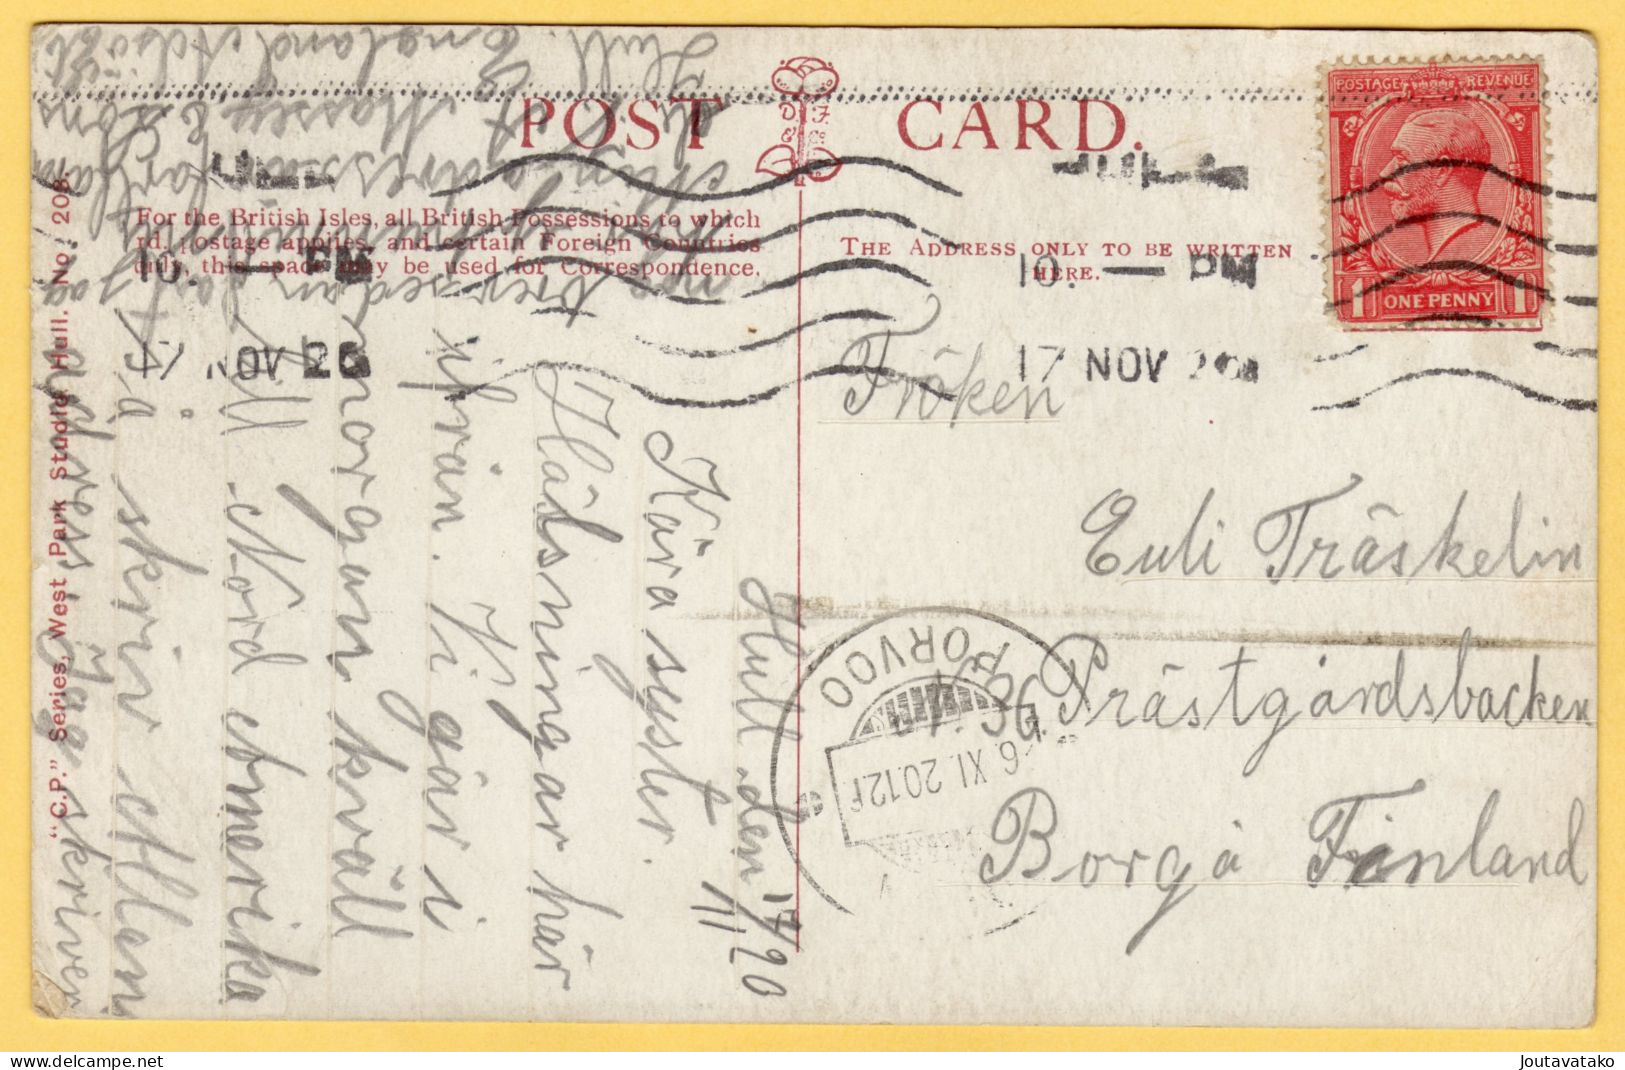 POST CARD.
D. F.
& Co.
For the British Isles, all British Possessions to which
rd. postage applies, and certain Foreign Countries
only, this space may be used for Correspondence.
THE ADDRESS ONLY TO BE WRITTEN
HERE.
"C.P." Series, West Park Studio Hull. No. 208.
POSTAGE REVENUE
1 ONE PENNY 1
10. PM
17 NOV 20
10. — PM
17 NOV 20
PORVOO
26.XI.20.12
Hull den 17/11 20
Kära syster.
Hälsningar här
ifrån. Vi går i
morgon kväll
till Nord Amerika
så skriv Allan
adress Jag skriver
Massey & Sons
Hull. England
Fröken
Euli Träskelin
Prästgårdsbacken
Borgå Finland
Joutavatako